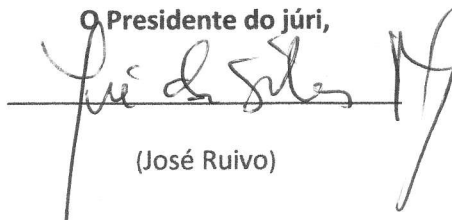 O Presidente do júri,
(José Ruivo)